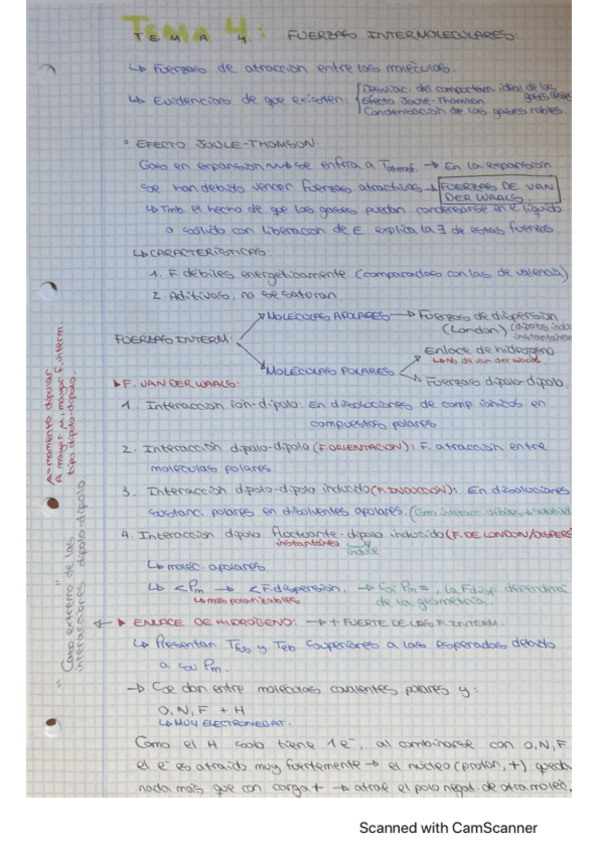 TEMA 4: FUERZAS INTERMOLECULARES.
↳ Fuerzas de atracción entre las moléculas.
↳ Evidencias de que existen: Desviac. del comportam. ideal de los gases
Efecto Joule-Thomson
Condensación de los gases nobles.
° EFECTO JOULE-THOMSON
Gas en expansión se enfría a → En la expansión
se han debido vencer fuerzas atractivas → FUERZAS DE VAN DER WAALS.
↳ Tmb. el hecho de que los gases puedan condensarse en líquido
o sólido con liberación de E explica la ∃ de estas fuerzas
↳ CARACTERÍSTICAS:
1. F débiles energéticamente (comparadas con las de valencia)
2. Aditivas, no se saturan
FUERZAS INTERM.
MOLÉCULAS APOLARES → Fuerzas de dispersión
(London)
MOLÉCULAS POLARES
Enlace de hidrógeno
↳ No de van der waals
Fuerzas dipolo-dipolo.
▸ F. VAN DER WAALS:
1. Interacción ion-dipolo: En disoluciones de comp. iónicos en
compuestos polares
2. Interacción dipolo-dipolo (F. ORIENTACIÓN): F. atracción entre
moléculas polares
3. Interacción dipolo-dipolo inducido (F. INDUCCIÓN): En disoluciones
sustanc. polares en disolventes apolares.
4. Interacción dipolo fluctuante-dipolo inducido (F. DE LONDON/
instantáneo
induce
↳ moléc. apolares
↳ < Pm → < F dispersión. → Si Pm =, la F disp. dependerá
↳ más polarizables
de la geometría.
μ = momento dipolar
A mayor μ, mayor F. interm.
tipo dipolo-dipolo.
"Caso extremo de las
interacciones dipolo-dipolo"
▸ ENLACE DE HIDRÓGENO: → + FUERTE DE LAS F. INTERM.
↳ Presentan Tfus y Teb superiores a las esperadas debido
a su Pm.
→ Se dan entre moléculas covalentes polares y:
O, N, F + H
↳ MUY ELECTRONEGAT.
Como el H solo tiene 1e⁻, al combinarse con O, N, F
el e⁻ es atraído muy fuertemente → el núcleo (protón, +) queda
nada más que con carga + → atrae el polo negat. de otra moléc.
Scanned with CamScanner